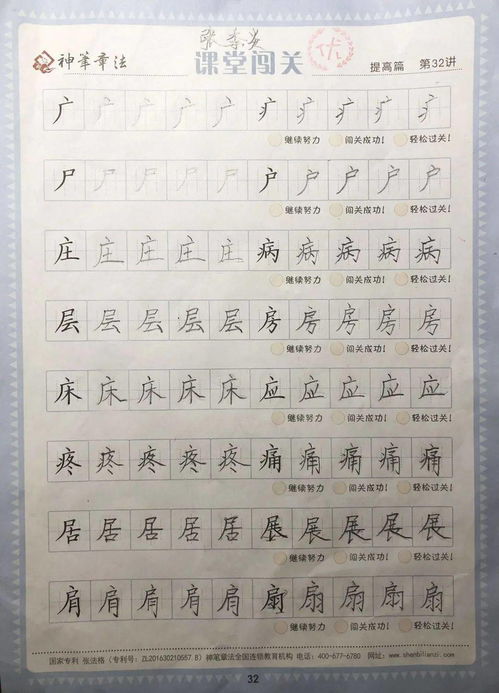 神笔章法 课堂闯关 优 提高篇 第32讲
广 广 广 广 广 疒 疒 疒 疒 疒
继续努力 闯关成功! 轻松过关!
尸 尸 尸 尸 尸 户 户 户 户 户
继续努力 闯关成功! 轻松过关!
庄 庄 庄 庄 庄 病 病 病 病 病
继续努力 闯关成功! 轻松过关!
层 层 层 层 层 房 房 房 房 房
继续努力 闯关成功! 轻松过关!
床 床 床 床 床 应 应 应 应 应
继续努力 闯关成功! 轻松过关!
疼 疼 疼 疼 疼 痛 痛 痛 痛 痛
继续努力 闯关成功! 轻松过关!
居 居 居 居 居 展 展 展 展 展
继续努力 闯关成功! 轻松过关!
肩 肩 肩 肩 肩 扇 扇 扇 扇 扇
继续努力 闯关成功! 轻松过关!
国家专利 张法格(专利号:ZL201630210557.8)神笔章法全国连锁教育机构 电话:400-677-6780 网址:www.shenbilianzi.com
32